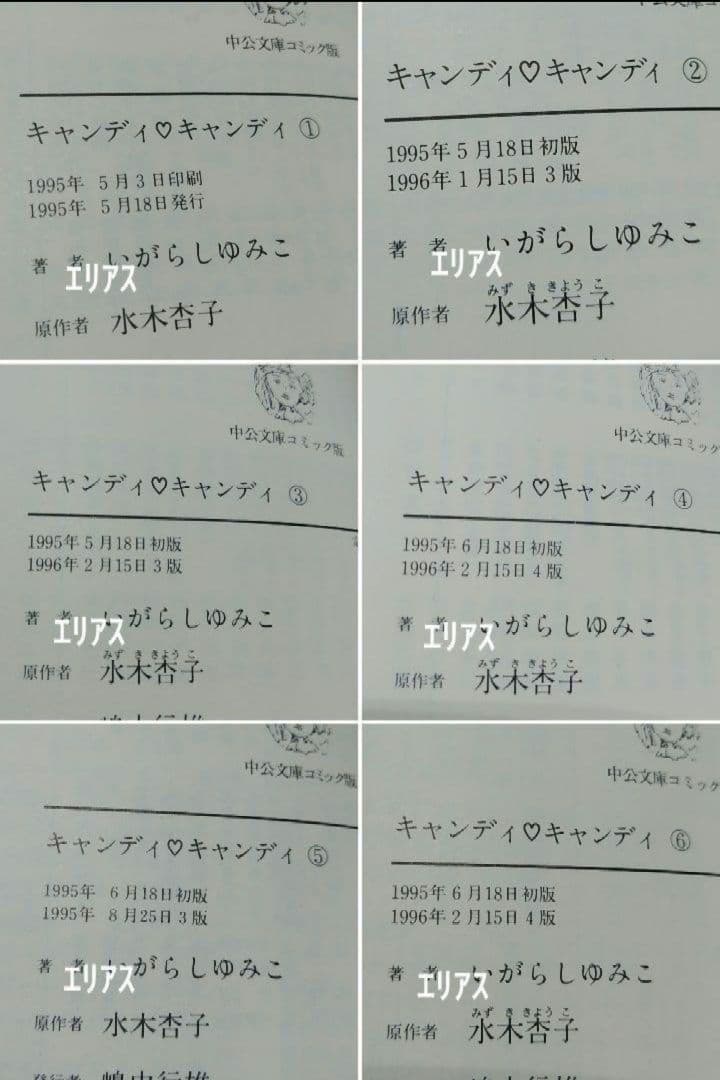 中公文庫コミック版
キャンディ♡キャンディ ①
1995年 5月3日印刷
1995年 5月18日発行
著者 いがらしゆみこ
エリアス
原作者 水木杏子
キャンディ♡キャンディ ②
1995年5月18日初版
1996年1月15日3版
著者 いがらしゆみこ
エリアス
みずききようこ
原作者 水木杏子
中公文庫コミック版
キャンディ♡キャンディ ③
1995年5月18日初版
1996年2月15日3版
著者 いがらしゆみこ
エリアス
みずききようこ
原作者 水木杏子
中公文庫コミック
キャンディ♡キャンディ ④
1995年6月18日初版
1996年2月15日4版
著者 いがらしゆみこ
エリアス
みずききようこ
原作者 水木杏子
中公文庫コミック版
キャンディ♡キャンディ ⑤
1995年 6月18日初版
1995年 8月25日3版
著者 いがらしゆみこ
エリアス
原作者 水木杏子
発行者 嶋中行雄
中公文庫コミック
キャンディ♡キャンディ ⑥
1995年6月18日初版
1996年2月15日4版
著者 いがらしゆみこ
エリアス
みずききようこ
原作者 水木杏子